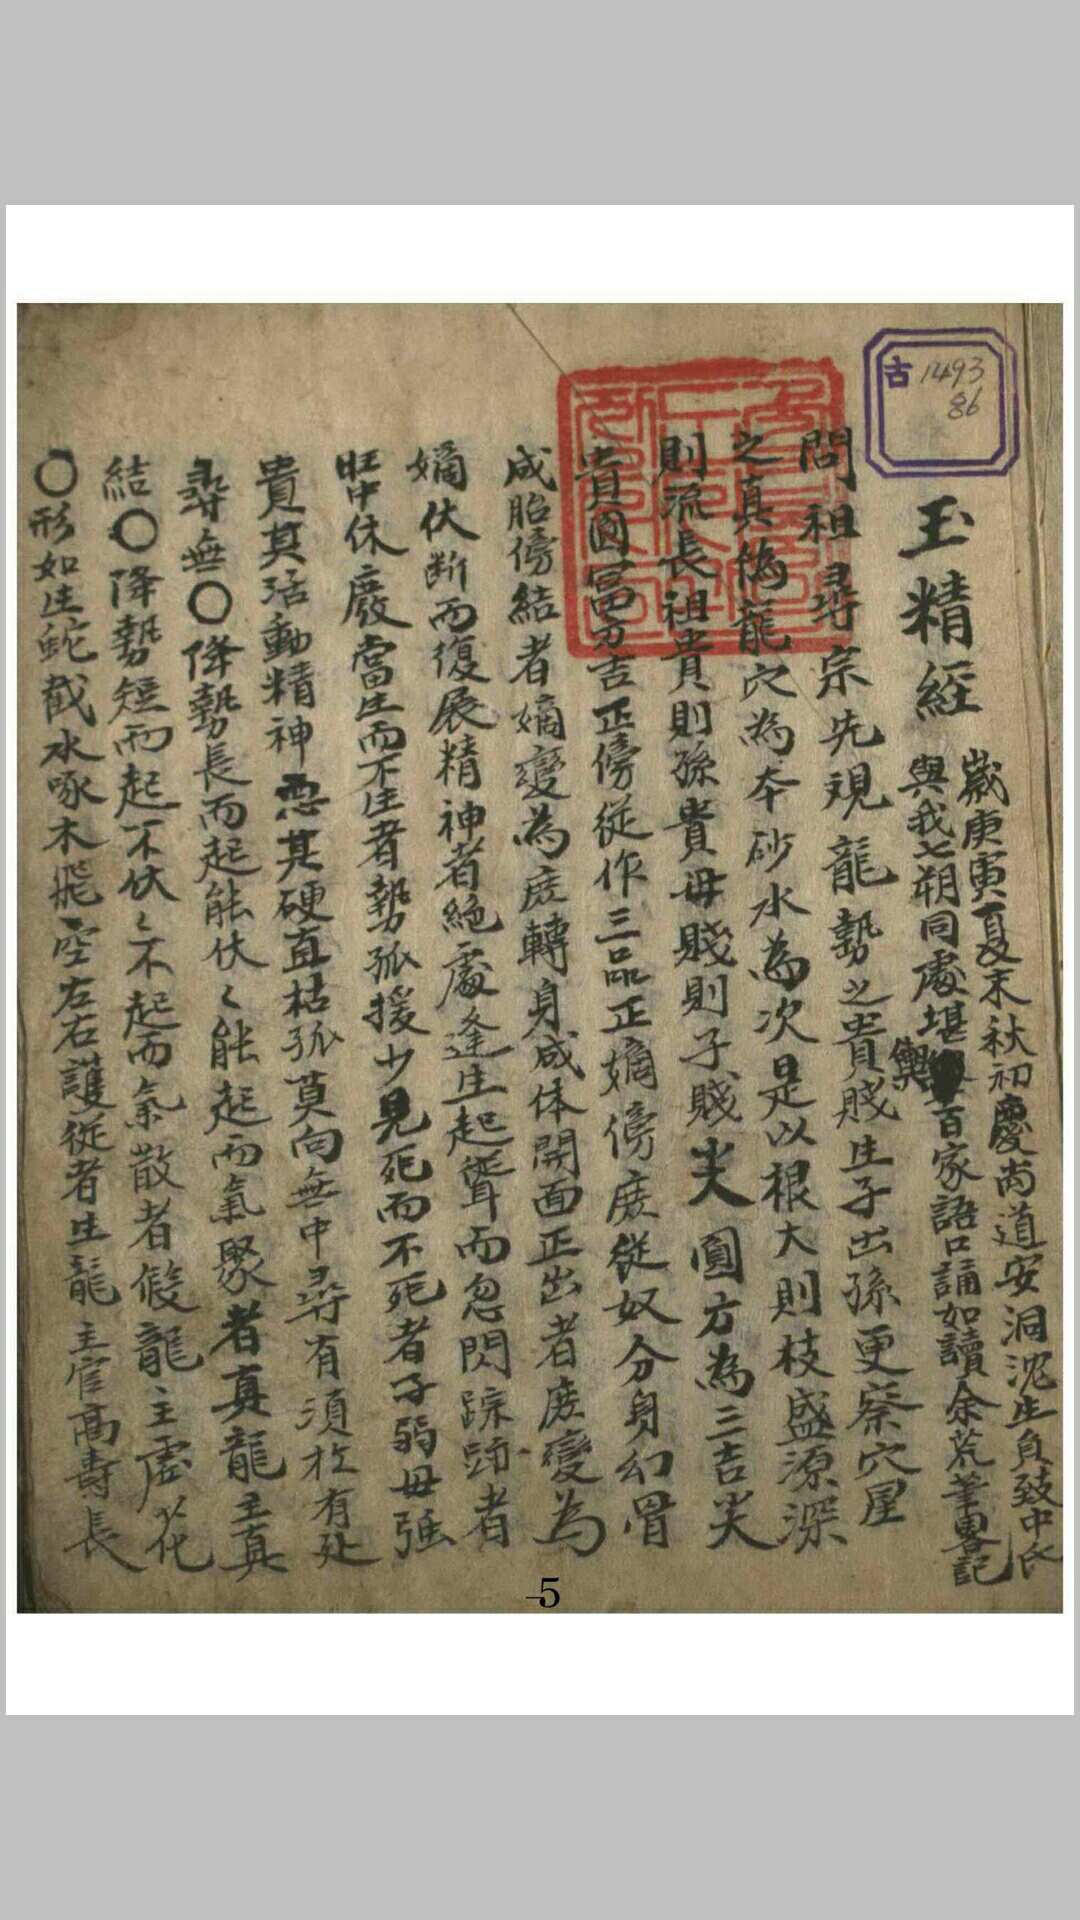 古 1493
86
玉精經
歲庚寅夏末秋初慶尚道安洞沈生員致中氏
與我七朔同處堪輿百家語口誦如讀余荒筆畧記
問祖尋宗先観龍勢之貴賤生子出孫更察穴星
之真偽龍穴為本砂水為次是以根大則枝盛源深
則流長祖貴則孫貴母賤則子賤尖圓方為三吉尖
貴圓富方吉正傍從作三品正嫡傍庶從奴分身幻骨
成胎傍結者嫡變為庶轉身成体開面正出者庶變為
嫡伏斷而復展精神者絶處逢生起聳而忽閃踪跡者
旺中休廢當生而不生者勢孤援少見死而不死者子弱母强
貴其活動精神悪其硬直枯孤莫向無中尋有須於有处
尋無〇降勢長而起能伏〻能起而氣聚者真龍主真
結〇降勢短而起不伏〻不起而氣散者假龍主虛花
〇形如生蛇截水啄木飛空左右護從者生龍主官高壽長
5